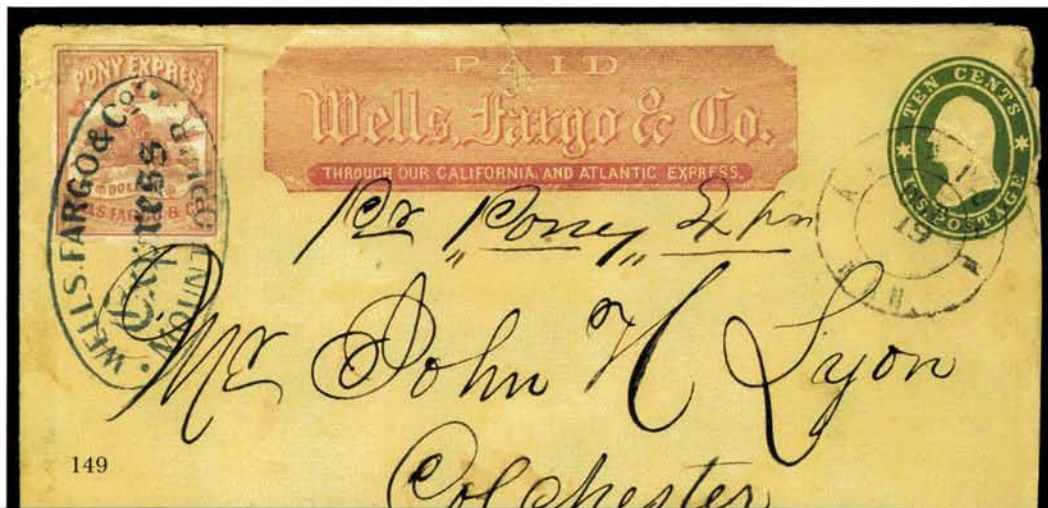 PONY EXPRESS
DOLLARS
WELLS. FARGO & CO
WELLS. FARGO & Co.
Express
PAID
Wells, Fargo & Co.
THROUGH OUR CALIFORNIA AND ATLANTIC EXPRESS.
TEN CENTS
U.S. POSTAGE
19
Pr "Poney" Expn
Mr John H Lyon
Colchester
149